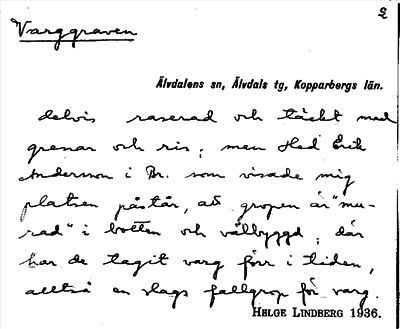 Varggraven
Älvdalens sn, Älvdals tg, Kopparbergs län.
delvis raserad och täckt med
grenar och ris; men Hed Erik
Andersson i Br. som visade mig
platsen påstår, att gropen är "mu-
rad" i botten och välbyggd; där
har de tagit varg förr i tiden,
alltså en slags fallgrop för varg.
HELGE LINDBERG 1936.